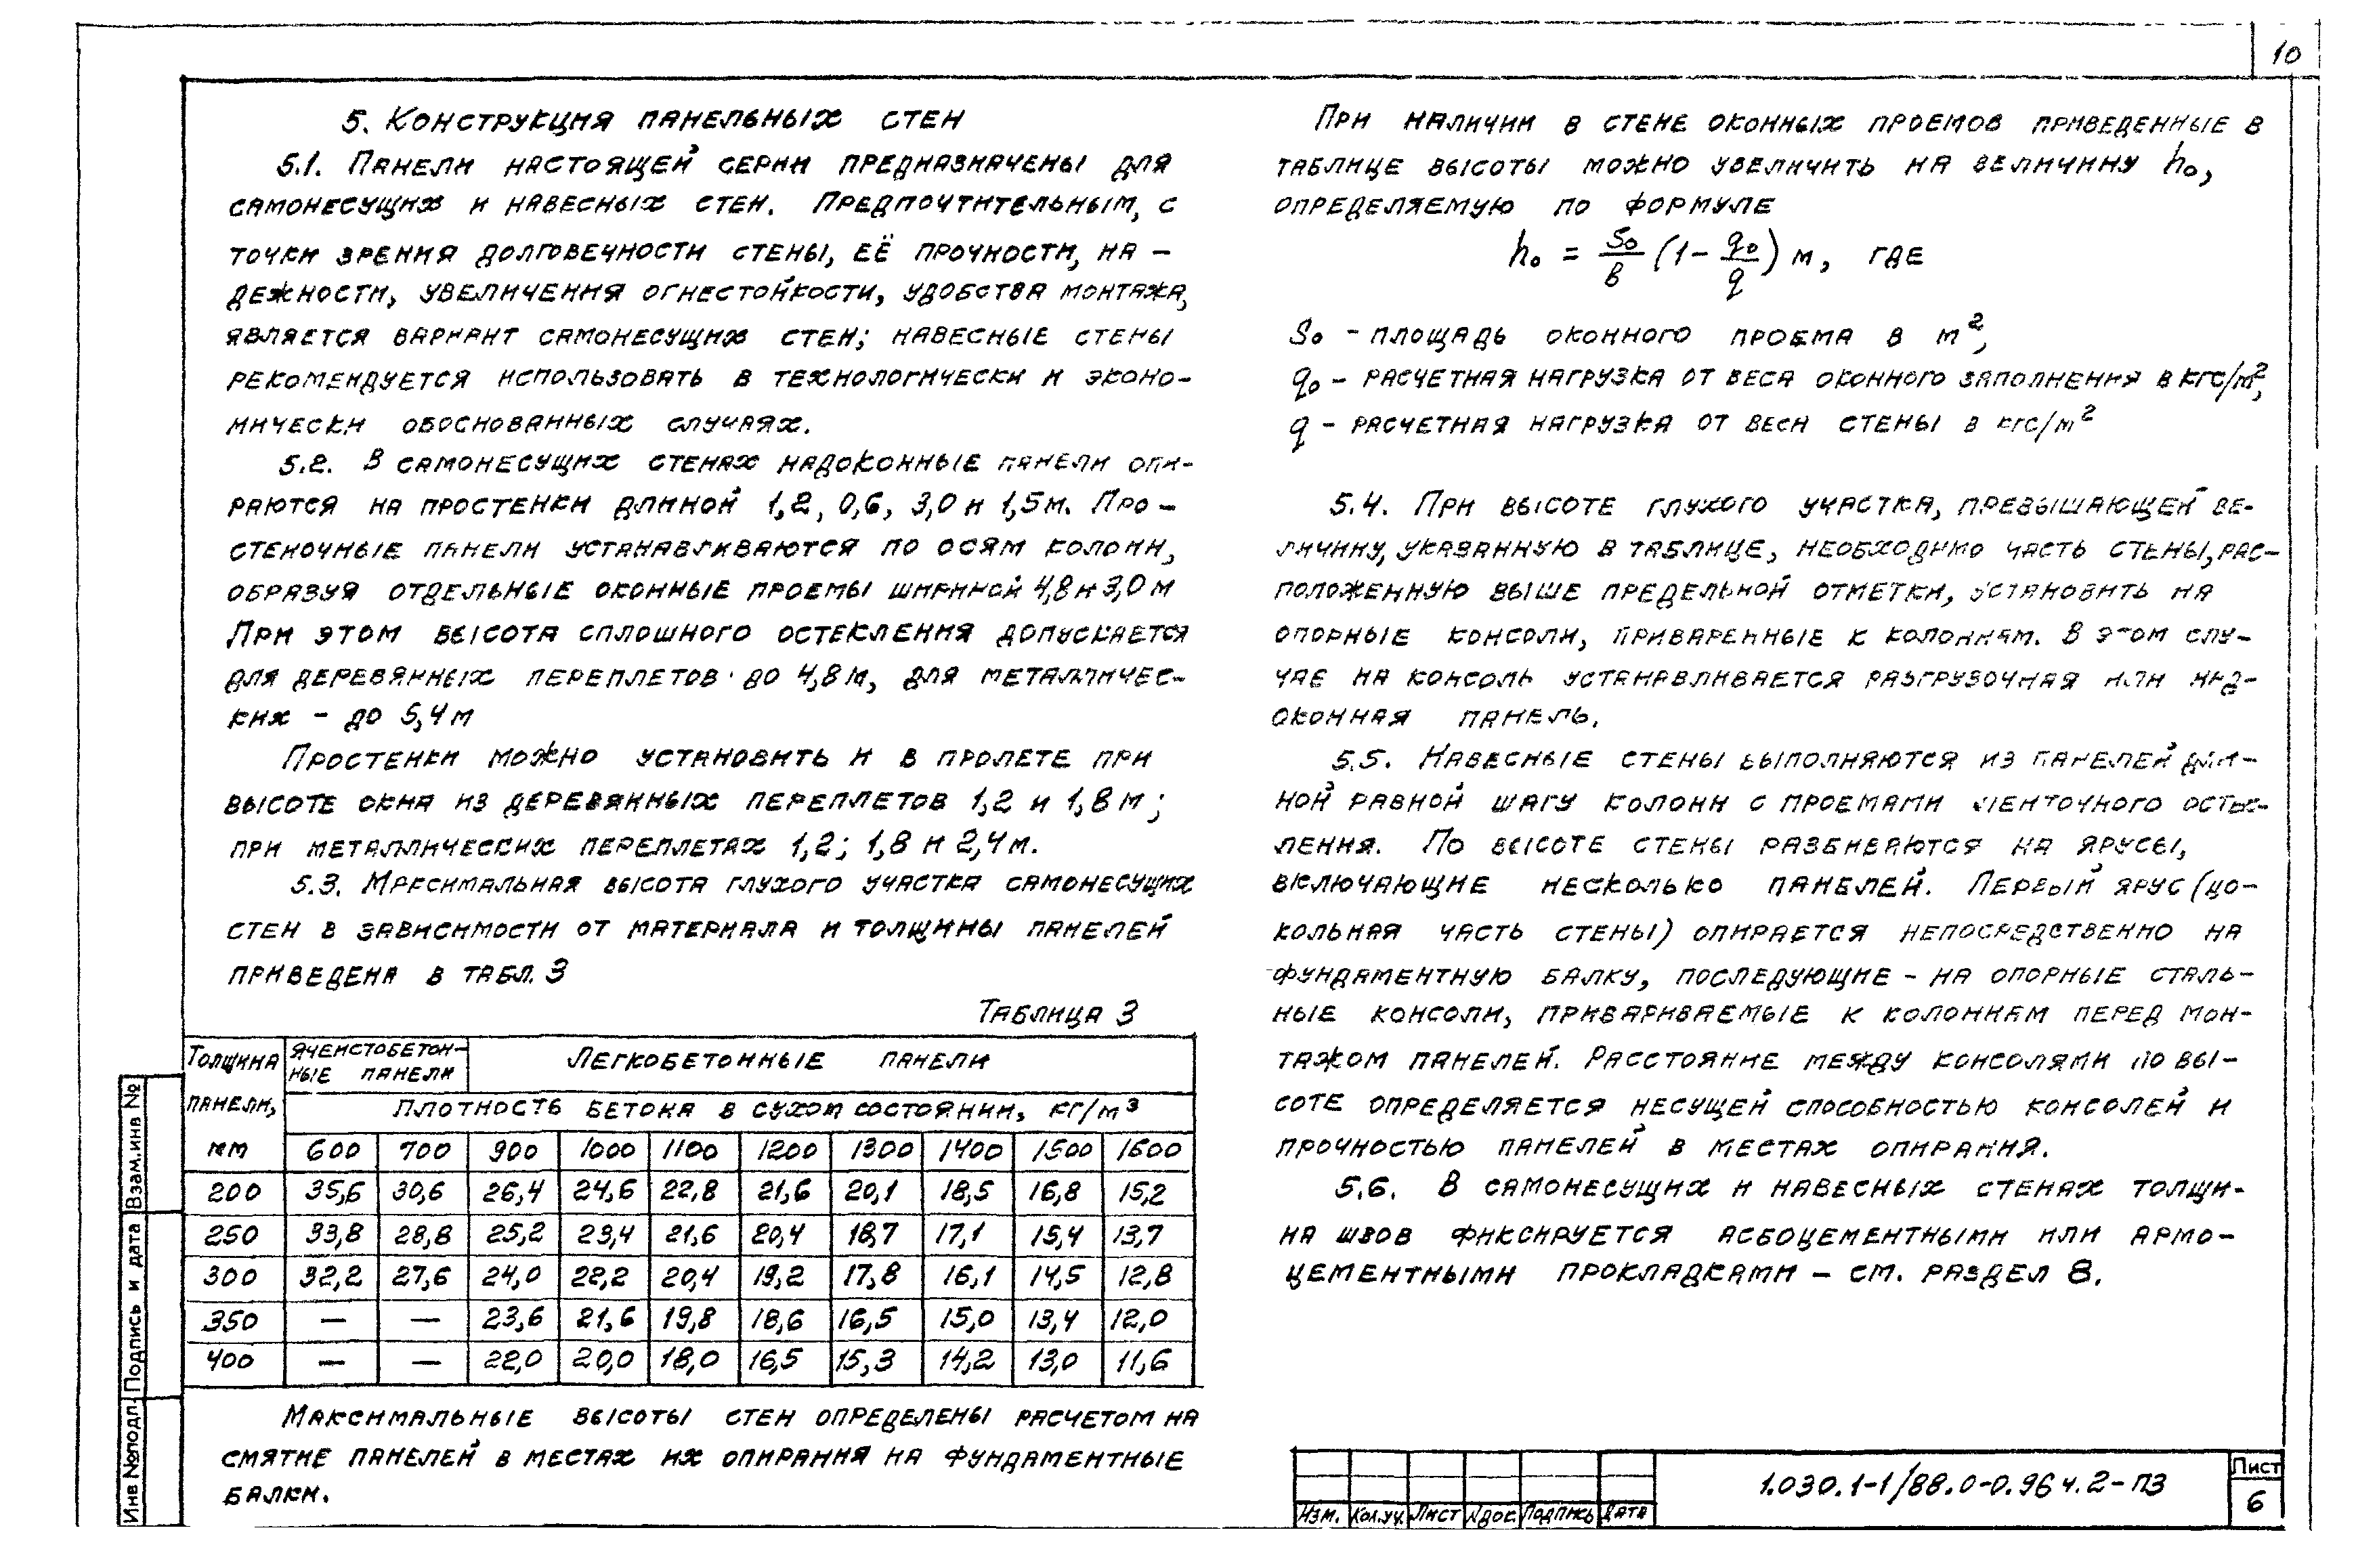 10
5. Конструкция панельных стен
5.1. Панели настоящей серии предназначены для
самонесущих и навесных стен. Предпочтительным, с
точки зрения долговечности стены, её прочности, на-
дежности, увеличения огнестойкости, удобства монтажа,
является вариант самонесущих стен; навесные стены
рекомендуется использовать в технологически и эконо-
мически обоснованных случаях.
5.2. В самонесущих стенах надоконные панели опи-
раются на простенки длиной 1,2, 0,6, 3,0 и 1,5м. Про-
стеночные панели устанавливаются по осям колонн,
образуя отдельные оконные проемы шириной 4,8 и 3,0 м
При этом высота сплошного остекления допускается
для деревянных переплетов до 4,8 м, для металличес-
ких - до 5,4 м
Простенки можно установить и в пролете при
высоте окна из деревянных переплетов 1,2 и 1,8 м;
при металлических переплетах 1,2; 1,8 и 2,4 м.
5.3. Максимальная высота глухого участка самонесущих
стен в зависимости от материала и толщины панелей
приведена в табл. 3
Таблица 3
Толщина панели, мм | Ячеистобетон-ные панели | Легкобетонные панели
Плотность бетона в сухом состоянии, кг/м³
600 | 700 | 900 | 1000 | 1100 | 1200 | 1300 | 1400 | 1500 | 1600
200 | 35,6 | 30,6 | 26,4 | 24,6 | 22,8 | 21,6 | 20,1 | 18,5 | 16,8 | 15,2
250 | 33,8 | 28,8 | 25,2 | 23,4 | 21,6 | 20,4 | 18,7 | 17,1 | 15,4 | 13,7
300 | 32,2 | 27,6 | 24,0 | 22,2 | 20,4 | 19,2 | 17,8 | 16,1 | 14,5 | 12,8
350 | — | — | 23,6 | 21,6 | 19,8 | 18,6 | 16,5 | 15,0 | 13,4 | 12,0
400 | — | — | 22,0 | 20,0 | 18,0 | 16,5 | 15,3 | 14,2 | 13,0 | 11,6
Максимальные высоты стен определены расчетом на
смятие панелей в местах их опирания на фундаментные
балки.
При наличии в стене оконных проемов приведенные в
таблице высоты можно увеличить на величину h₀,
определяемую по формуле
h₀ = S₀/в (1 - q₀/q) м, где
S₀ - площадь оконного проема в м²,
q₀ - расчетная нагрузка от веса оконного заполнения в кгс/м²,
q - расчетная нагрузка от веса стены в кгс/м²
5.4. При высоте глухого участка, превышающей ве-
личину, указанную в таблице, необходимо часть стены, рас-
положенную выше предельной отметки, установить на
опорные консоли, приваренные к колоннам. В этом слу-
чае на консоль устанавливается разгрузочная или над-
оконная панель.
5.5. Навесные стены выполняются из панелей дли-
ной равной шагу колонн с проемами ленточного остек-
ления. По высоте стены разбиваются на ярусы,
включающие несколько панелей. Первый ярус (цо-
кольная часть стены) опирается непосредственно на
фундаментную балку, последующие - на опорные сталь-
ные консоли, привариваемые к колоннам перед мон-
тажом панелей. Расстояние между консолями по вы-
соте определяется несущей способностью консолей и
прочностью панелей в местах опирания.
5.6. В самонесущих и навесных стенах толщи-
на швов фиксируется асбоцементными или армо-
цементными прокладками - см. раздел 8.
Взам.инв №
Подпись и дата
Инв №подл.
Изм. Кол.уч. Лист Nдос. Подпись Дата
1.030.1-1/88.0-0.96 ч.2-ПЗ
Лист
6